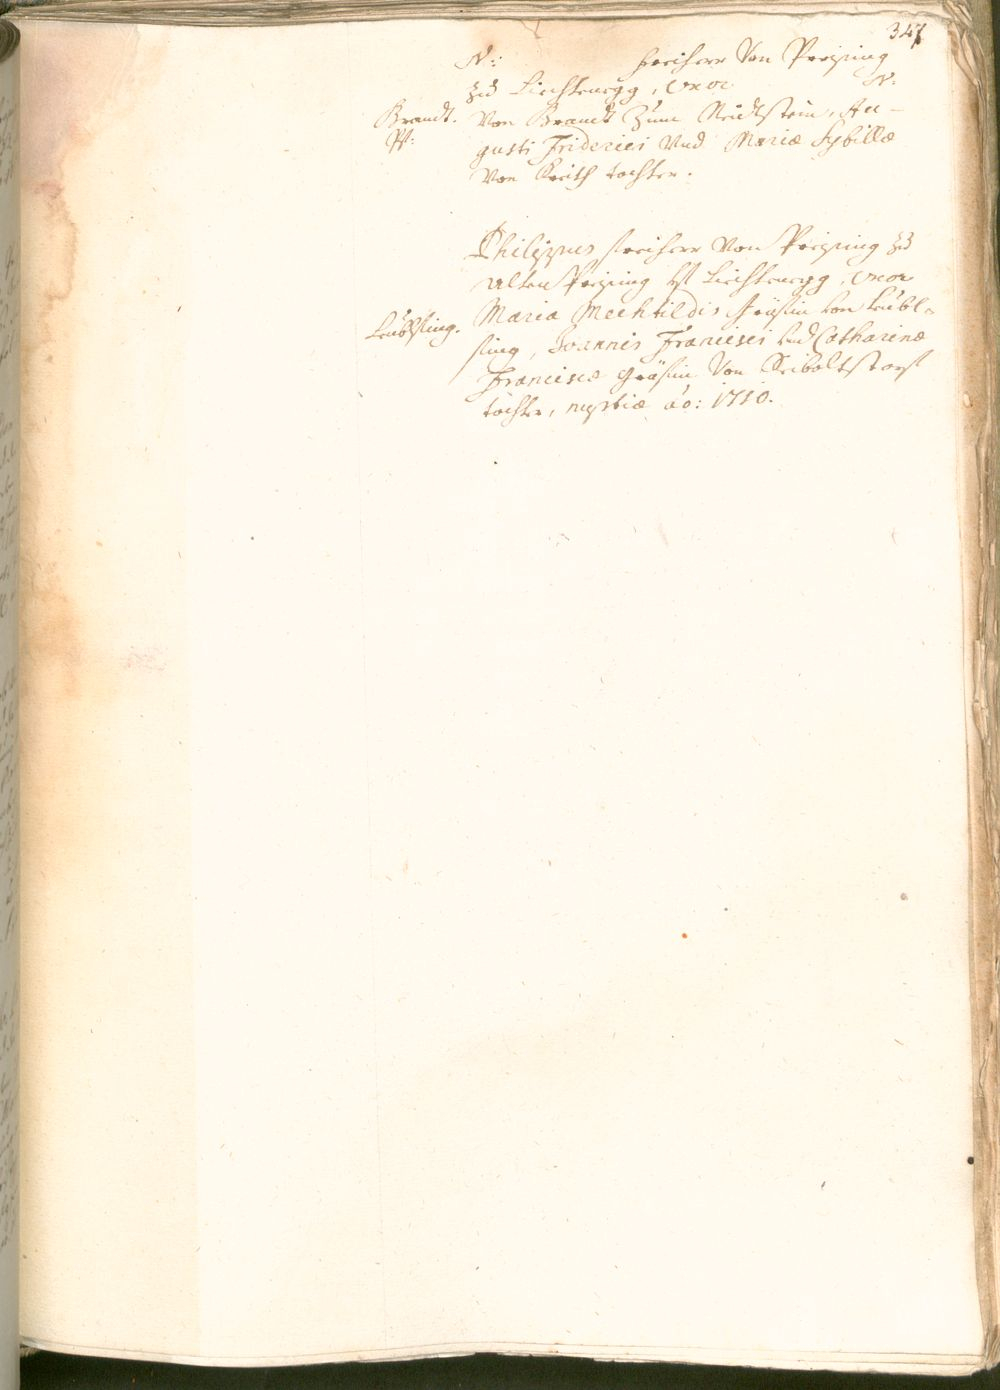 347
N: freiherr Von Preÿsing
zu Liechtenegg, Uxor N:
Brandt. Von Brandt Zum Neidtstein, Au-
PP: gusti Friderici Vnd Mariæ Sybillæ
Von Kreith tochter.
Philippus freiherr Von Preÿsing zu
alten Preÿsing Liechtenegg, Uxor
Maria Mechtildis Gräfin von Leübl-
Leüblfing. fing, Joannis Francisci vnd Catharinæ
Franciscæ Gräfin Von Seiboltstorf
tochter, nuptiæ ao: 1710.